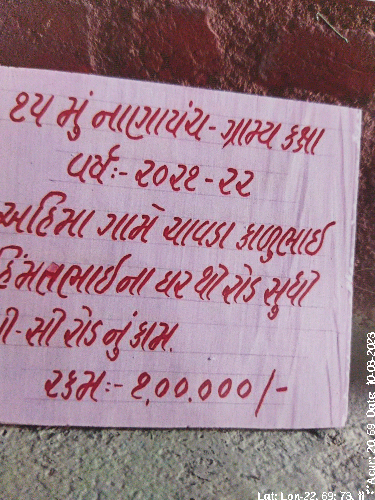 ૧૫ મું નાણાપંચ - ગ્રામ્ય કક્ષા
વર્ષઃ- ૨૦૨૧-૨૨
અહિમા ગામે ચાવડા કાળુભાઈ
હિંમતભાઈ ના ઘર થી રોડ સુધી
સી રોડ નું કામ.
રકમઃ- ૧,૦૦,૦૦૦/-
Lat: Lon-22. 69: 73. 11
Acur: 20. 69 Date: 10-03-2023